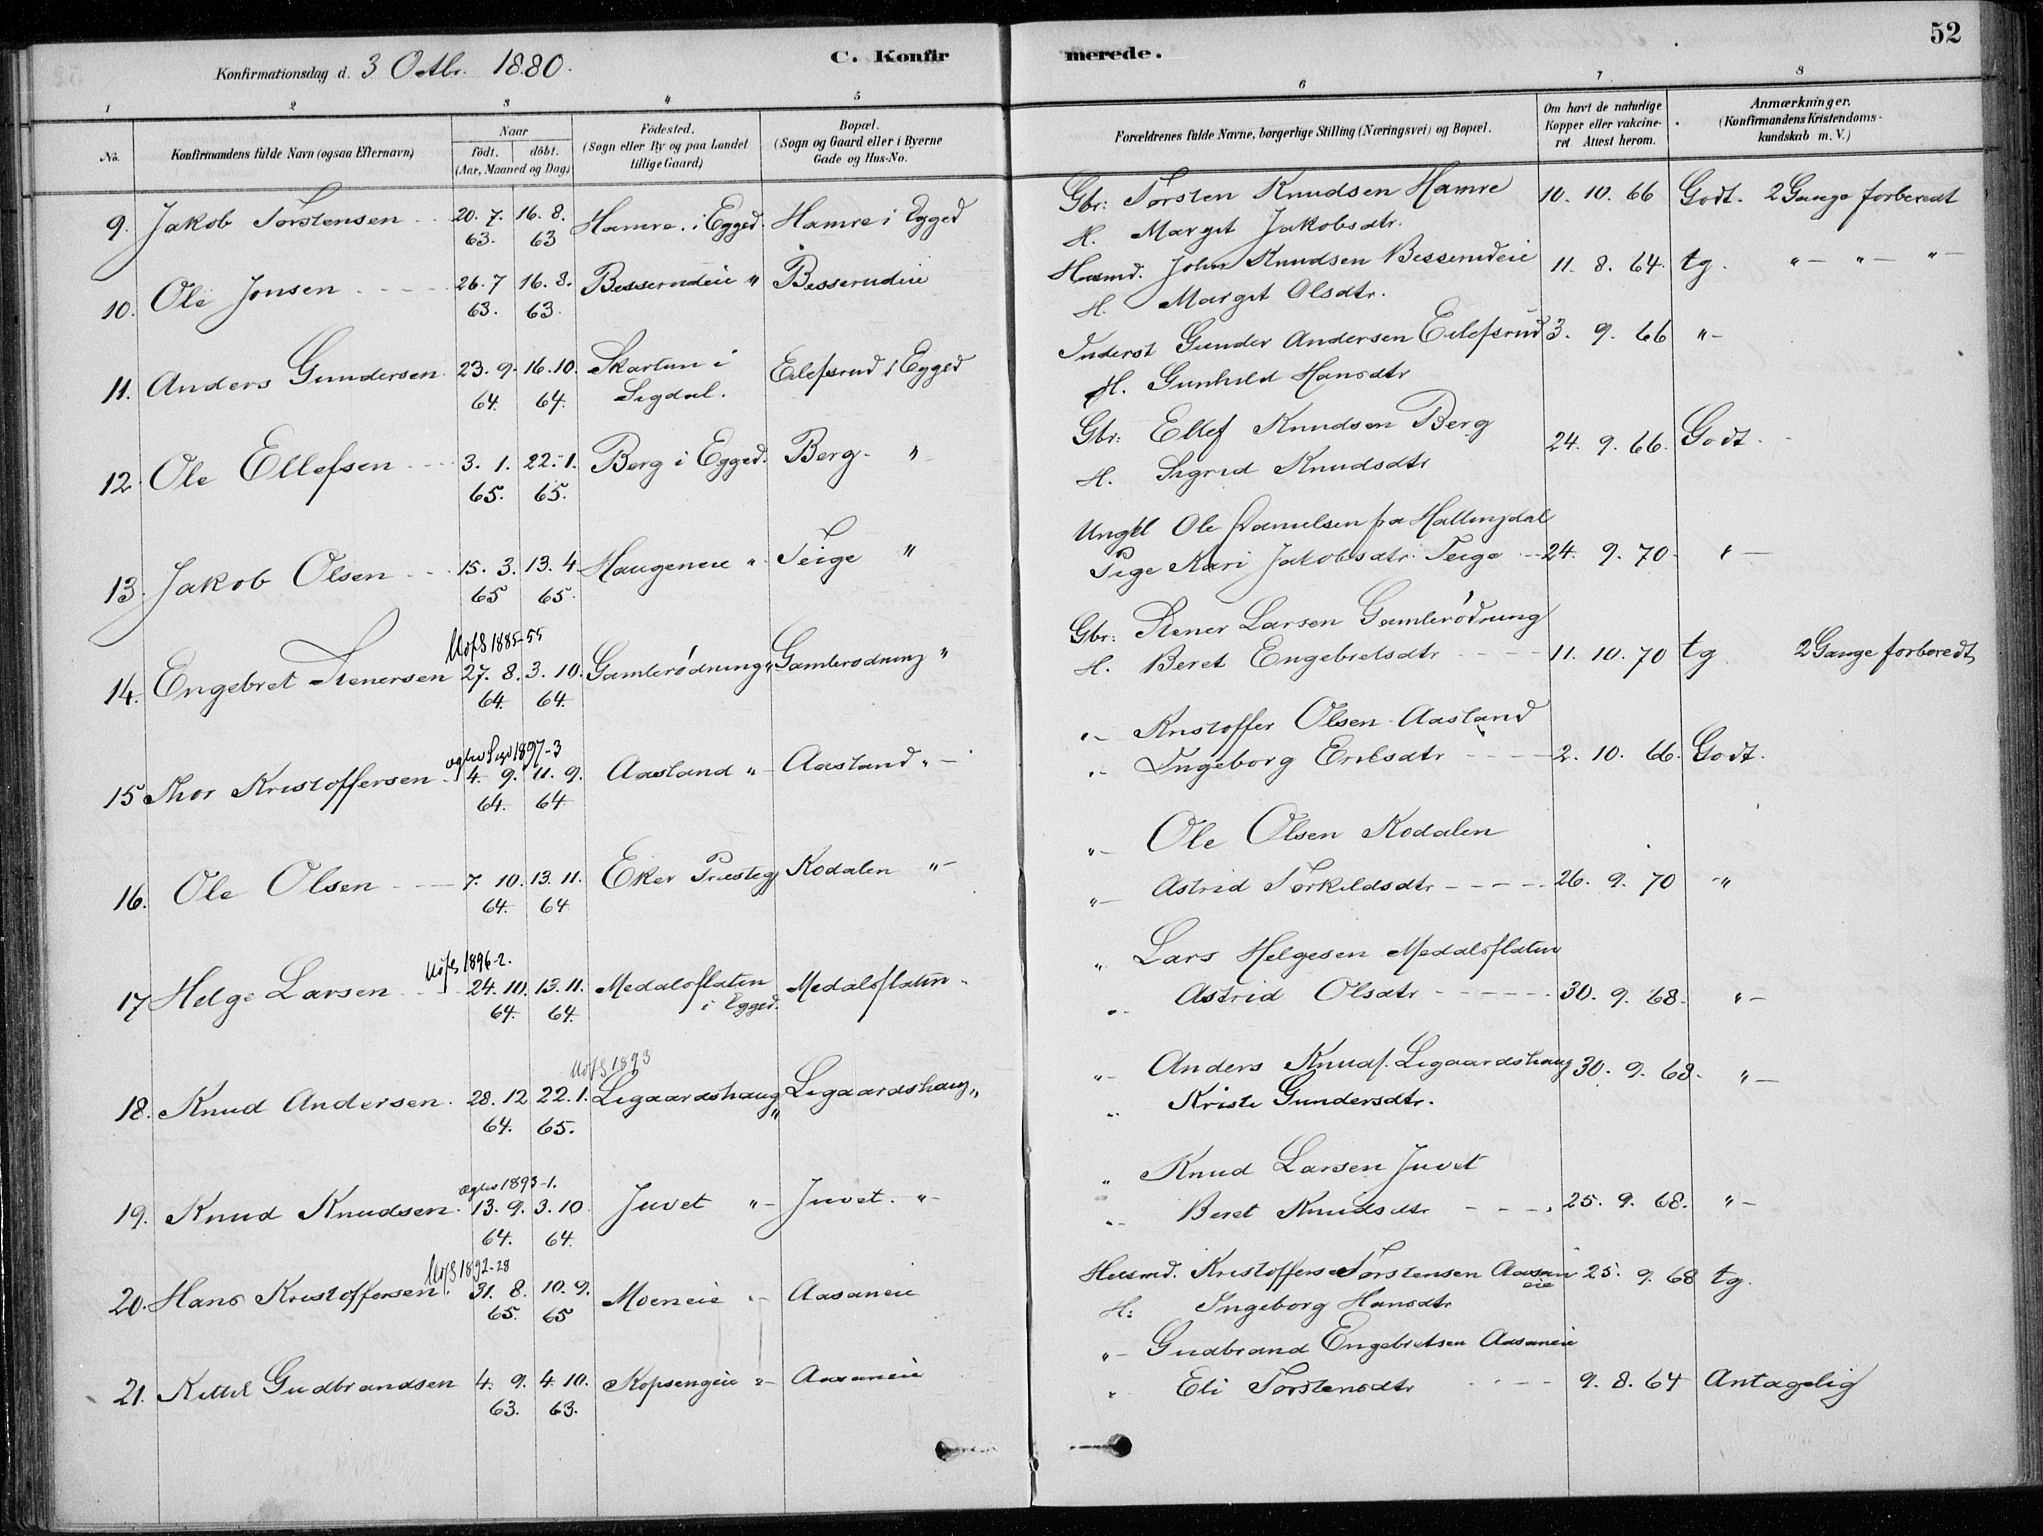 52
Konfirmationsdag d. 3 Octbr. 1880.
C. Konfirmerede.
1 2 3 4 5 6 7 8
No.
Konfirmandens fulde Navn (ogsaa Efternavn)
Naar
födt. döbt.
(Aar, Maaned og Dag)
Födested.
(Sogn eller By og paa Landet
tillige Gaard)
Bopæl.
(Sogn og Gaard eller i Byerne
Gade og Hus-No.
Forældrenes fulde Navne, borgerlige Stilling (Næringsvei) og Bopæl.
Om havt de naturlige
Kopper eller vakcine-
ret Attest herom.
Anmærkninger.
(Konfirmandens Kristendoms-
kundskab m. V.)
9. Jakob Torstensen 20. 7. 16. 8. Hamre i Egged. Hamre i Egged Gbr: Torsten Knudsen Hamre 10. 10. 66 Godt. 2 Gange forberedt
63. 63 H. Margit Jakobsdtr.
10. Ole Jonsen 26. 7 16. 8. Besserudeie " Besserudeie Husmd. John Knudsen Besserudeie 11. 8. 64. tg. " - " - " -
63. 63. H. Margit Olsdtr.
11. Anders Gundersen 23. 9. 16. 10. Skartum i Eilefsrud i Egged Inderst Gunder Andersen Eilefsrud 3. 9. 66 " -
64. 64. Sigdal. H. Gunhild Hansdtr
12. Ole Ellefsen 3. 1. 22. 1. Berg i Egged. Berg " Gbr: Ellef Knudsen Berg 24. 9. 66. Godt.
65. 65. H. Sigrid Knudsdtr
13. Jakob Olsen 15. 3. 13. 4. Haugeneie " Teige " Ungkl Ole Danielsen fra Hallingdal
65 65. Pige Kari Jakobsdtr. Teige 24. 9. 70 " -
Uofs 1885-55
14. Engebret Stenersen 27. 8. 3. 10. Gamlerødning " Gamlerødning " Gbr: Stener Larsen Gamlerødning
64. 64. H. Beret Engebretsdtr 11. 10. 70 tg 2 Gange forberedt
1897-3
15 Thor Kristoffersen 4. 9. 11. 9. Aasland " Aasland " - " - Kristoffer Olsen Aasland
64. 64 " - Ingeborg Eriksdtr 2. 10. 66. Godt.
16. Ole Olsen 7. 10. 13. 11. Eker Præsteg Kodalen " - " - Ole Olsen Kodalen
64. 64 " - Astrid Torkildsdtr 26. 9. 70 - "
Uofs 1896-2.
17 Helge Larsen 24. 10. 13. 11. Medalsflaten Medalsflaten " Lars Helgesen Medalsflaten
64. 64. i Egged. " - Astrid Olsdtr 30. 9. 68. " -
Uofs 1893
18. Knud Andersen 28. 12 22. 1. Ligaardshaug " Ligaardshaug " " - Anders Knuds. Ligaardshaug 30. 9. 68. " -
64. 65. " - Kristi Gundersdtr.
1893-1.
19. Knud Knudsen 13. 9. 3. 10 Juvet " - Juvet. " - " Knud Larsen Juvet
64. 64. " - Beret Knudsdtr 25. 9. 68. " -
Uofs 1892-28
20. Hans Kristoffersen 31. 8. 10. 9. Moeneie " - Aasaneie Husmd. Kristoffersen Torstensen Aasaneie 25. 9. 68 tg.
65. 65 H: Ingeborg Hansdtr
21. Kittil Gudbrandsen 4. 9. 4. 10. Kopsengeie " - Aasaneie " - Gudbrand Engebretsen Aasaneie
63. 63. " Eli Torstensdtr 9. 8. 64 Antagelig